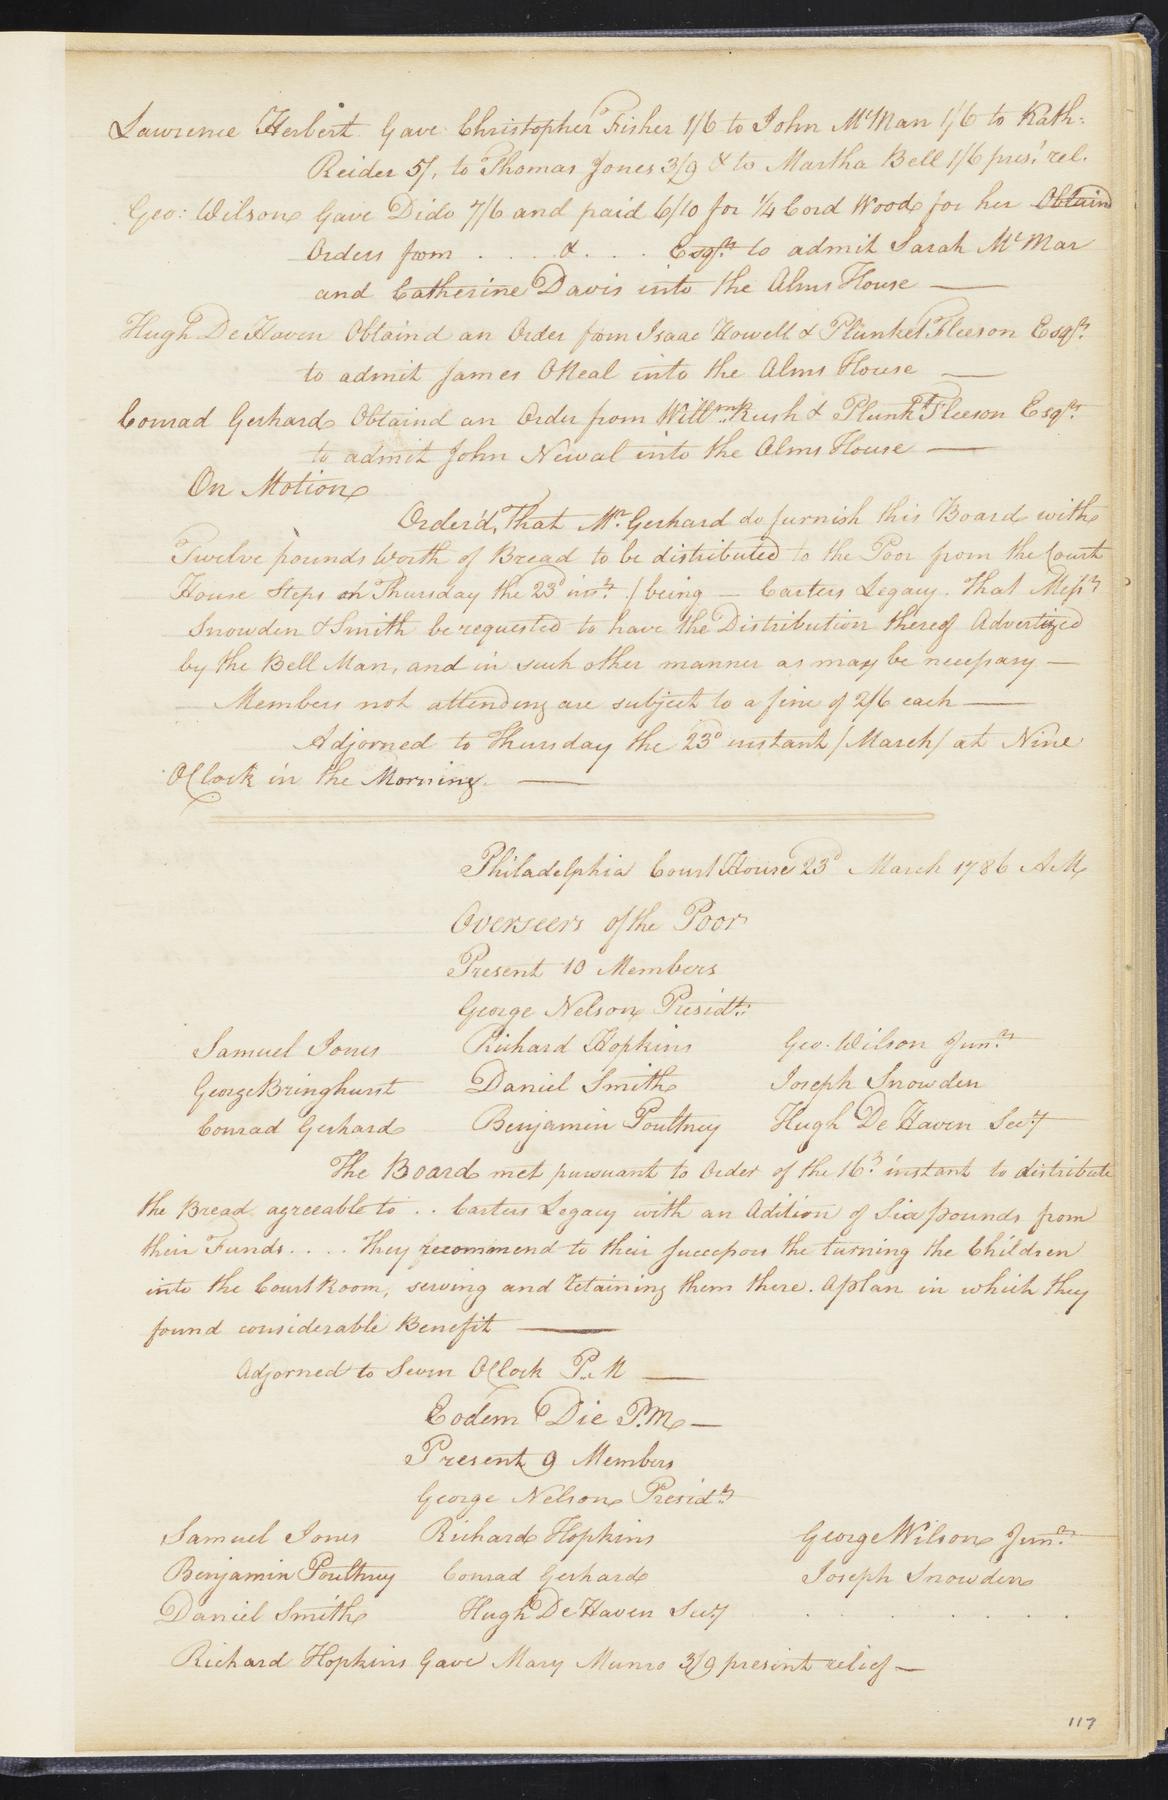 Lawrence Herbert Gave Christopher Fisher 1/6 to John McMan 1/6 to Kath:
Reider 5/, to Thomas Jones 3/9 & to Martha Bell 1/6 prest. rel.
Geo: Wilson Gave Dido 7/6 and paid 6/10 for 1/4 Cord Wood for her Obtaind
Orders from . . . . & . . . . Esqrs. to admit Sarah McMan
and Catherine Davis into the Alms House —
Hugh De Haven Obtaind an Order from Isaac Howell & Plunket Fleeson Esqrs.
to admit James ONeal into the Alms House —
Conrad Gerhard Obtaind an Order from Willm. Rush & Plunkt Fleeson Esqrs.
to admit John Newal into the Alms House —
On Motion
Order'd, That Mr. Gerhard do furnish this Board with
Twelve pounds worth of Bread to be distributed to the Poor from the Court
House Steps on Thursday the 23d inst. / being — Carters Legacy. That Messrs
Snowden & Smith be requested to have the Distribution thereof Advertized
by the Bell Man, and in such other manner as may be necessary —
Members not attending are subject to a fine of 2/6 each —
Adjorned to Thursday the 23d instant / March / at Nine
OClock in the Morning. —
Philadelphia Court House 23d March 1786 A.M
Overseers of the Poor
Present 10 Members
George Nelson Presidt.
Samuel Jones Richard Hopkins Geo. Wilson Junr.
George Bringhurst Daniel Smith Joseph Snowden
Conrad Gerhard Benjamin Poultney Hugh De Haven Secy
The Board met pursuant to Order of the 16th. instant to distribute
the Bread agreeable to . . Carters Legacy with an Adition of Six pounds from
their Funds . . . . they recommend to their Successors the turning the Children
into the Court Room, serving and retaining them there. A plan in which they
found considerable Benefit —
Adjorned to Seven OClock P.M —
Eodem Die P.M —
Present 9 Members
George Nelson Presidt.
Samuel Jones Richard Hopkins George Wilson Junr.
Benjamin Poultney Conrad Gerhard Joseph Snowden
Daniel Smith Hugh De Haven Secy . . . . . . . . .
Richard Hopkins Gave Mary Munro 3/9 present relief —
117